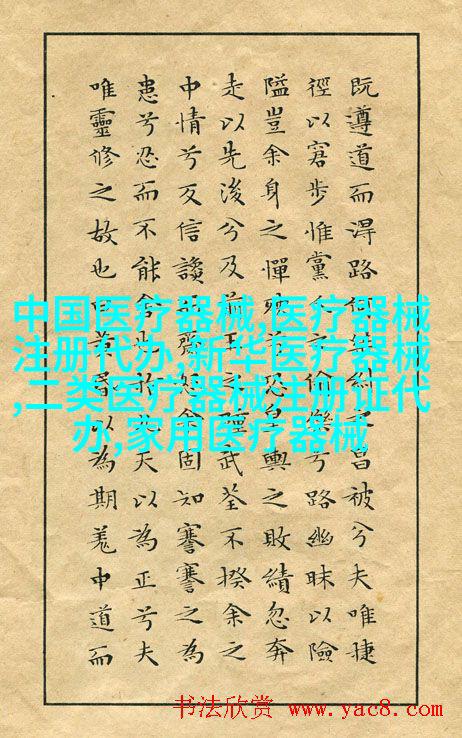 既遵道而淂路昌被兮夫唯捷
徑以窘步惟黨人之偷樂兮路幽昧以險
隘豈余身之憚殃恐皇輿之敗績忽奔
走以先後兮及前王之踵武荃不揆余之
中情兮反信讒齌怒余固知謇謇之為
患兮忍而不能舍天以為正兮夫
唯靈修之故也曰黃昏以為期羌中道而
中国医疗器械,医疗器械
注册代办,新华医疗器械
,二类医疗器械注册证代
办,家用医疗器械
书法欣赏 www.yac8.com